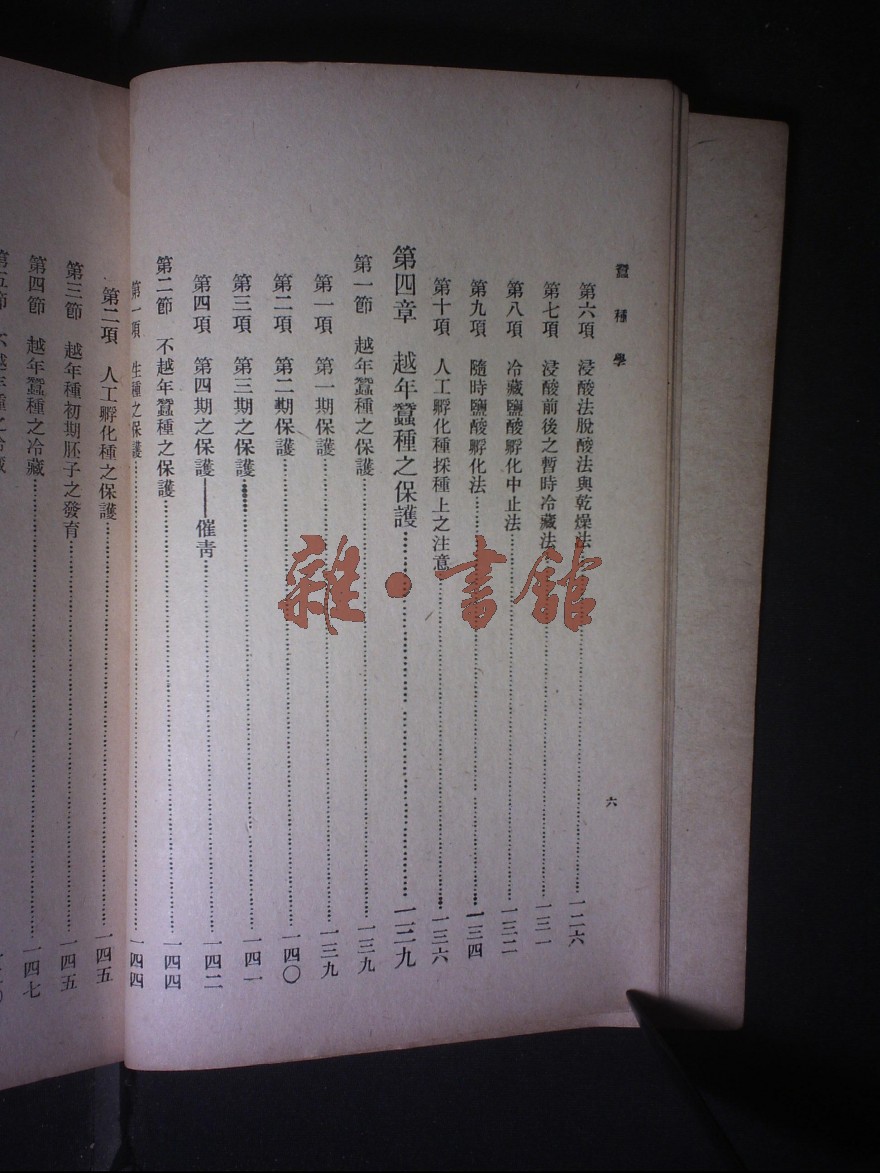 蠶種學
六
第六項 浸酸法脫酸法與乾燥法……一二六
第七項 浸酸前後之暫時冷藏法……一三一
第八項 冷藏鹽酸孵化中止法……一三二
第九項 隨時鹽酸孵化法……一三四
第十項 人工孵化種採種上之注意……一三六
第四章 越年蠶種之保護……一三九
第一節 越年蠶種之保護……一三九
第一項 第一期保護……一三九
第二項 第二期保護……一四〇
第三項 第三期之保護……一四一
第四項 第四期之保護——催青……一四二
第二節 不越年蠶種之保護……一四四
第一項 生種之保護……一四四
第二項 人工孵化種之保護……一四五
第三節 越年種初期胚子之發育……一四五
第四節 越年蠶種之冷藏……一四七
雜·書館